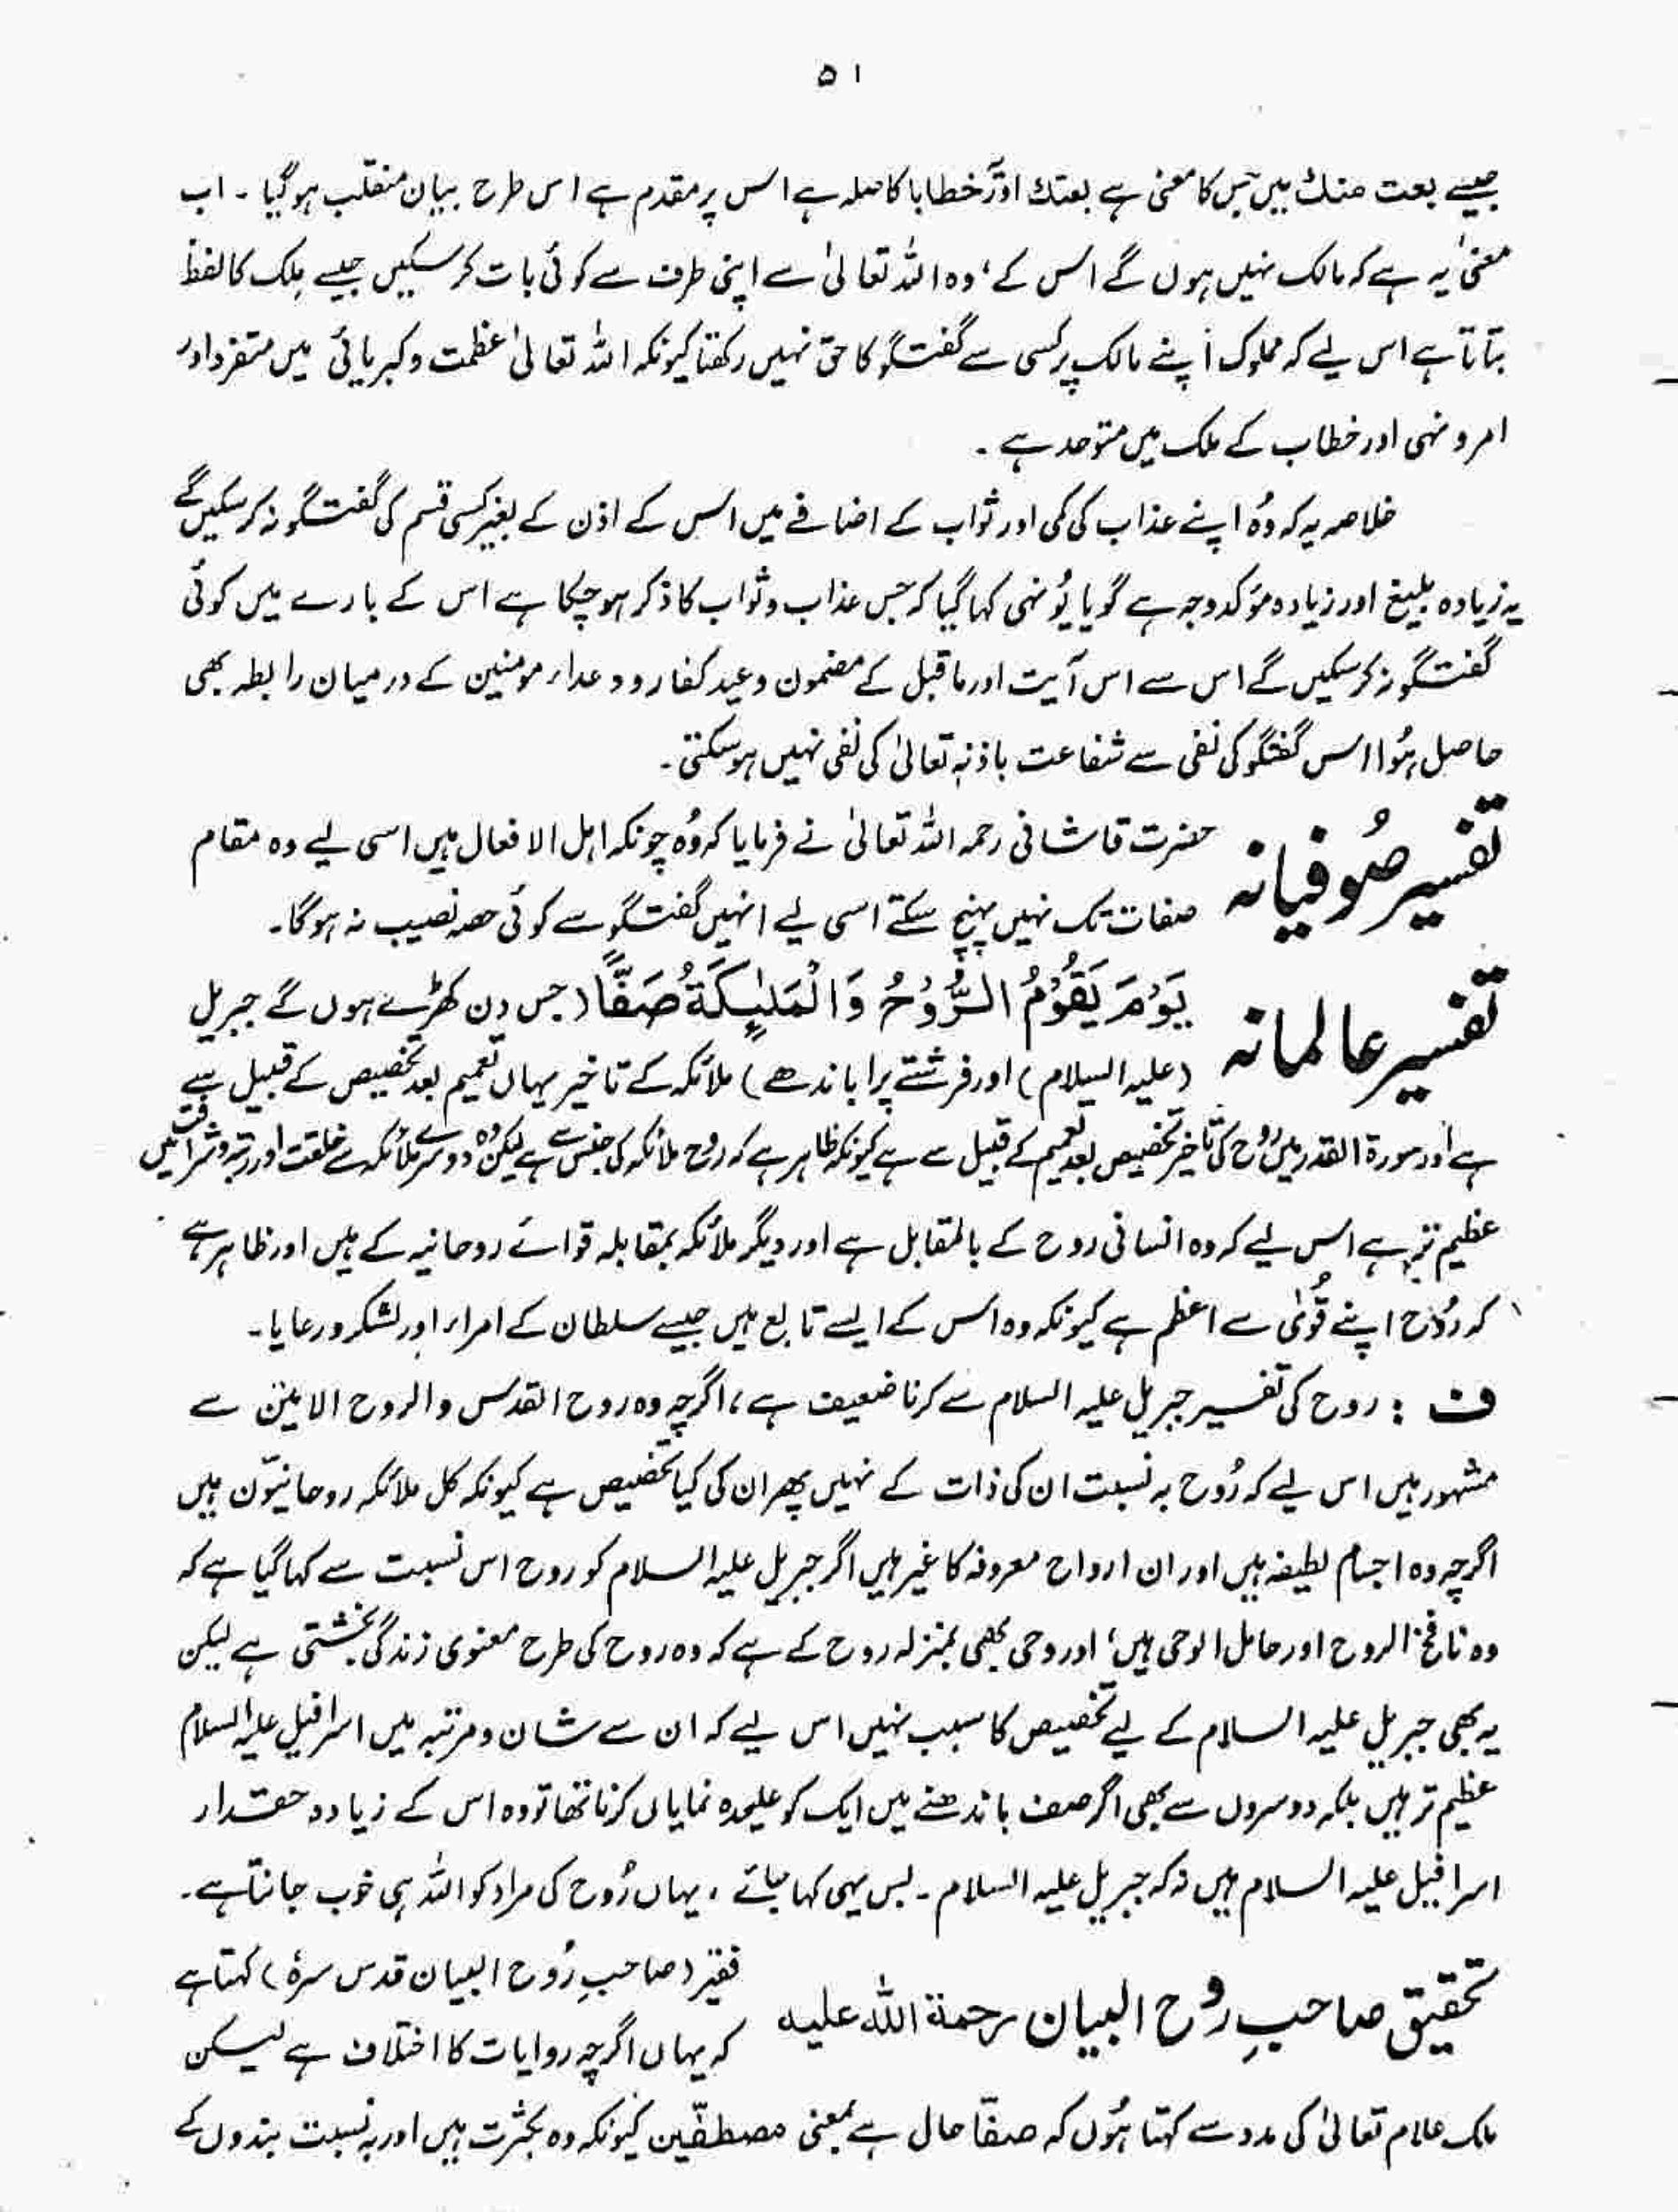 ۵۱
جیسے بعت منك میں جس کا معنیٰ ہے بعتك اور خطابا کا صلہ ہے اس پر مقدم ہے اس طرح بیان منقلب ہوگیا ۔ اب
معنیٰ یہ ہے کہ مالک نہیں ہوں گے اس کے، وہ اللہ تعالیٰ سے اپنی طرف سے کوئی بات کرسکیں جیسے مِلک کا لفظ
بتاتا ہے اس لیے کہ مملوک اپنے مالک پر کسی سے گفتگو کا حق نہیں رکھتا کیونکہ اللہ تعالیٰ عظمت و کبریائی میں متفرد اور
امر و نہی اور خطاب کے ملک میں متوحد ہے ۔
خلاصہ یہ کہ وُہ اپنے عذاب کی کمی اور ثواب کے اضافے میں اس کے اذن کے بغیر کسی قسم کی گفتگو نہ کرسکیں گے
یہ زیادہ بلیغ اور زیادہ مؤکد وجہ ہے گویا یُونہی کہا گیا کہ جس عذاب و ثواب کا ذکر ہوچکا ہے اس کے بارے میں کوئی
گفتگو نہ کرسکیں گے اس سے اس آیت اور ماقبل کے مضمون وعید کفار و وعداء مومنین کے درمیان رابطہ بھی
حاصل ہُوا اس گفتگو کی نفی سے شفاعت باذنہٖ تعالیٰ کی نفی نہیں ہوسکتی۔
تفسیر صُوفیانہ حضرت قاشانی رحمہ اللہ تعالیٰ نے فرمایا کہ وُہ چونکہ اہل الافعال ہیں اسی لیے وہ مقام
صفات تک نہیں پہنچ سکتے اسی لیے انہیں گفتگو سے کوئی حصہ نصیب نہ ہوگا۔
تفسیر عالمانہ یَوْمَ یَقُوْمُ الرُّوْحُ وَالْمَلٰٓئِکَةُ صَفًّا (جس دن کھڑے ہوں گے جبریل
(علیہ السلام) اور فرشتے پرا باندھے) ملائکہ کے تاخیر یہاں تعمیم بعد تخصیص کے قبیل سے
ہے اور سورۃ القدر میں رُوح کی تاخیر تخصیص بعد تعمیم کے قبیل سے ہے کیونکہ ظاہر ہے کہ روح ملائکہ کی جنس سے ہے لیکن وُہ دوسرے ملائکہ سے خلقت اور رتبہ و شرافت میں
عظیم تر ہے اس لیے کہ وہ انسانی روح کے بالمقابل ہے اور دیگر ملائکہ بمقابلہ قوائے روحانیہ کے ہیں اور ظاہر ہے
کہ رُوح اپنے قُوٰی سے اعظم ہے کیونکہ وہ اس کے ایسے تابع ہیں جیسے سلطان کے امراء اور لشکر و رعایا۔
ف : روح کی تفسیر جبریل علیہ السلام سے کرنا ضعیف ہے، اگرچہ وہ روح القدس والروح الامین سے
مشہور ہیں اس لیے کہ رُوح بہ نسبت ان کی ذات کے نہیں پھر ان کی کیا تخصیص ہے کیونکہ کل ملائکہ روحانیّون ہیں
اگرچہ وہ اجسام لطیفہ ہیں اور ان ارواح معروفہ کا غیر ہیں اگر جبریل علیہ السلام کو روح اس نسبت سے کہا گیا ہے کہ
وہ نافخ الروح اور حامل الوحی ہیں، اور وحی بھی بمنزلہ روح کے ہے کہ وہ روح کی طرح معنوی زندگی بخشتی ہے لیکن
یہ بھی جبریل علیہ السلام کے لیے تخصیص کا سبب نہیں اس لیے کہ ان سے شان و مرتبہ میں اسرافیل علیہ السلام
عظیم تر ہیں بلکہ دوسروں سے بھی اگر صف باندھنے میں ایک کو علیحدہ نمایاں کرنا تھا تو وہ اس کے زیادہ حقدار
اسرافیل علیہ السلام ہیں نہ کہ جبریل علیہ السلام ۔ بس یہی کہا جائے ، یہاں رُوح کی مراد کو اللہ ہی خوب جانتا ہے۔
تحقیق صاحبِ روح البیان رحمۃ اللہ علیہ فقیر (صاحبِ رُوح البیان قدس سرہٗ) کہتا ہے
کہ یہاں اگرچہ روایات کا اختلاف ہے لیکن
ملک علام تعالیٰ کی مدد سے کہتا ہُوں کہ صفّا حال ہے بمعنی مصطفّین کیونکہ وہ بکثرت ہیں اور بہ نسبت بندوں کے